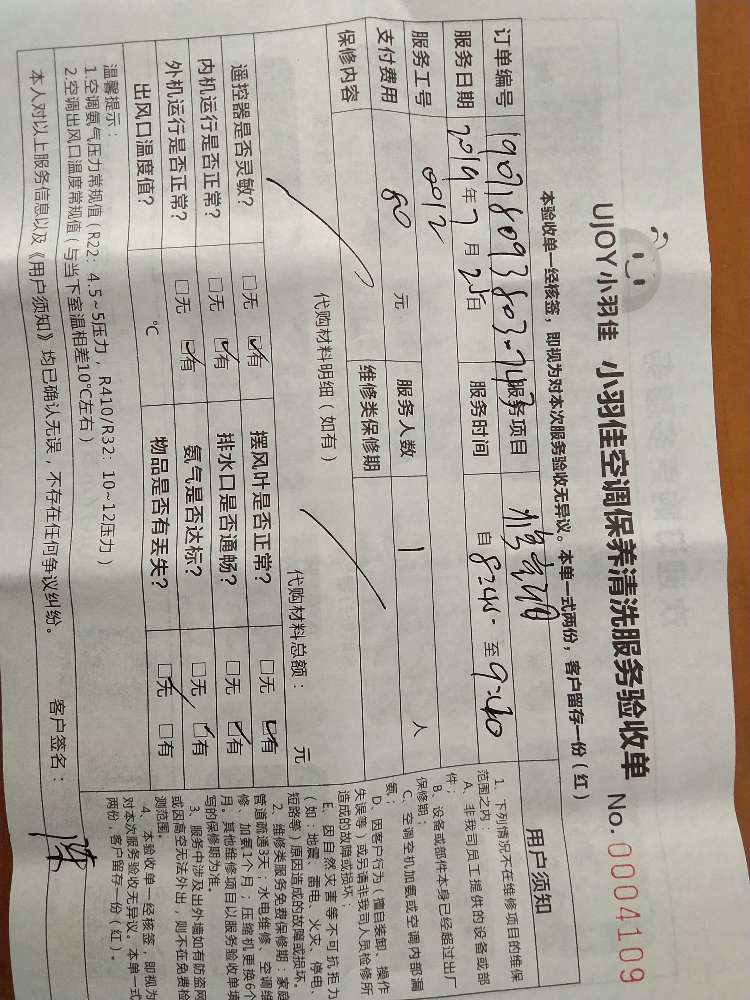 UJOY小羽佳 小羽佳空调保养清洗服务验收单 No. 0004109
本验收单一经核签，即视为对本次服务验收无异议。本单一式两份，客户留存一份（红）
订单编号 服务项目
服务日期 2019年7月25日 服务时间 自8:45-至9:40
服务工号 0012 服务人数 1 人
支付费用 80 元 维修类保修期
保修内容
代购材料明细（如有） 代购材料总额： 元
遥控器是否灵敏？ □无 ☑有 摆风叶是否正常？ □无 ☑有
内机运行是否正常？ □无 ☑有 排水口是否通畅？ □无 ☑有
外机运行是否正常？ □无 ☑有 氨气是否达标？ □无 ☑有
出风口温度值？ ℃ 物品是否有丢失？ ☑无 □有
温馨提示：
1.空调氨气压力常规值（R22：4.5~5压力，R410/R32：10~12压力）
2.空调出风口温度常规值（与当下室温相差10℃左右）
本人对以上服务信息以及《用户须知》均已确认无误，不存在任何争议纠纷。 客户签名：陈
用户须知
1、下列情况不在维修项目的维保
范围之内：
A、非我司员工提供的设备或部
件；
B、设备或部件本身已经超过出厂
保修期；
C、空调空机加氨或空调内部漏
氨；
D、因客户行为（擅自装卸、操作
失误等）或另请非我司人员检修所
造成的故障或损坏；
E、因自然灾害等不可抗拒力
（如：地震、雷电、火灾、停电、
短路等）原因造成的故障或损坏。
2、维修类服务免费保修期：家庭
管道疏通3天；水电维修、空调维
修、加氨1个月；压缩机更换6个
月。其他维修项目以服务验收单填
写的保修期为准。
3、服务中涉及出外墙如有防盗网
或因高空无法外出，则不在免费检
测范围。
4、本验收单一经核签，即视为
对本次服务验收无异议。本单一式
两份，客户留存一份（红）。